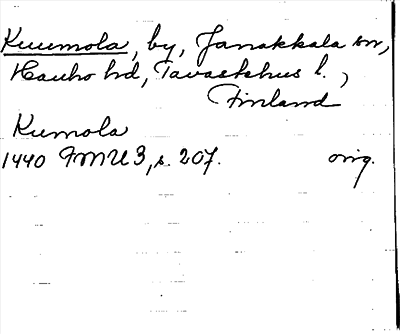 Kuumola, by, Janakkala sn,
Hauho hd, Tavastehus l.,
Finland
Kumola
1440 FMU 3, s. 207. orig.